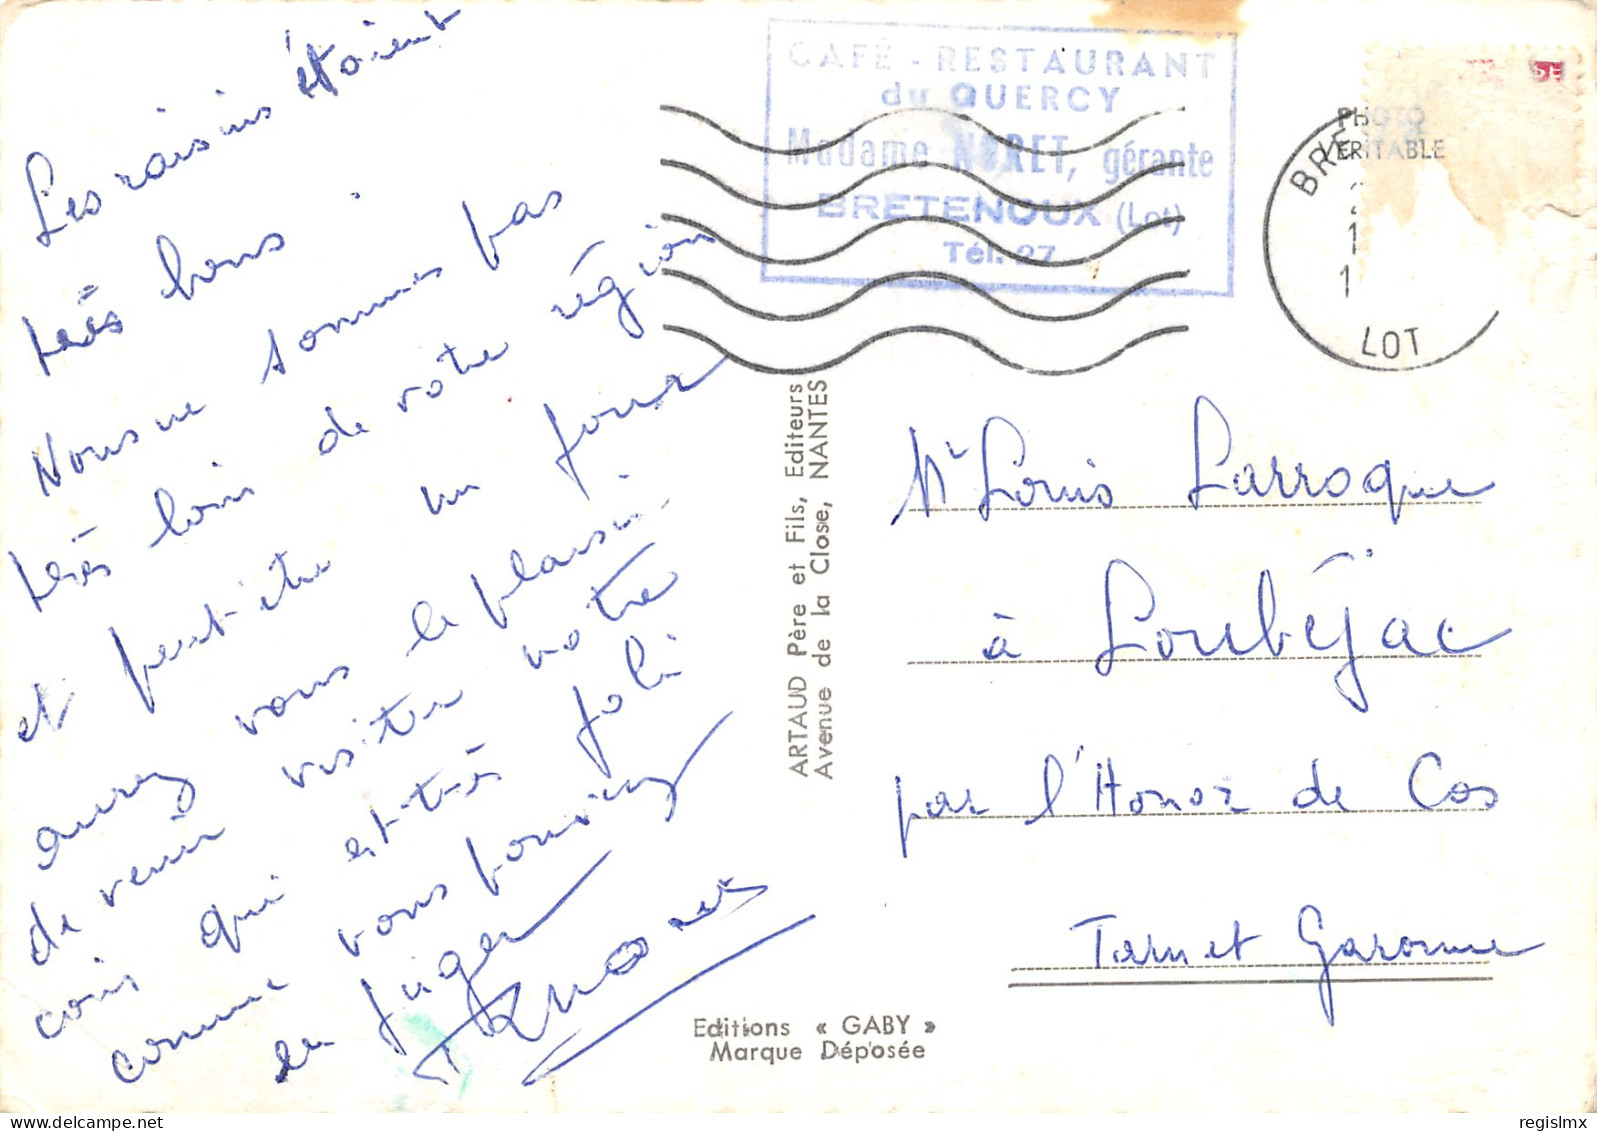 Les raisins étaient
très bons.
Nous ne sommes pas
très loin de votre région
et peut-être un jour
aurez vous le plaisir
de venir visiter notre
coin qui est très joli
comme vous pouviez
en juger
CAFÉ - RESTAURANT
du QUERCY
Madame NORET, gérante
BRETENOUX (Lot)
Tél. 27
PHOTO
VERITABLE
BRE
LOT
ARTAUD Père et Fils, Editeurs
Avenue de la Close, NANTES
Mr Louis Larroque
à Loubéjac
par l'Honor de Cos
Tarn et Garonne
Editions « GABY »
Marque Déposée
regislmx